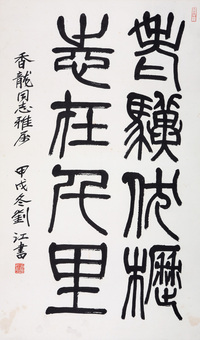 老驥伏櫪
志在千里
香龍同志雅属
甲戌冬劉江書